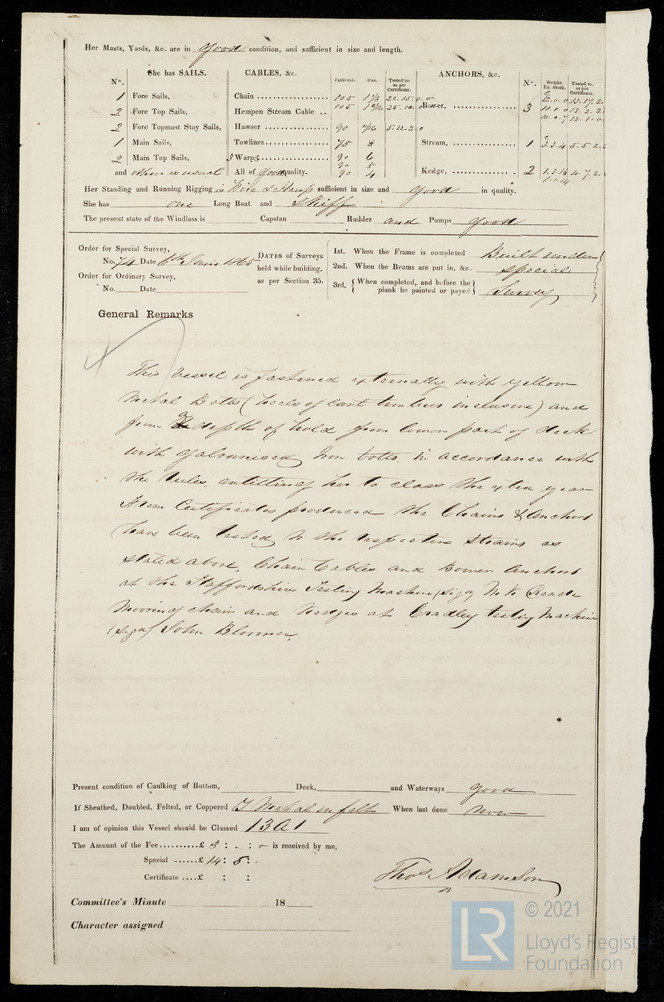 Her Masts, Yards, &c. are in good condition, and sufficient in size and length.
She has SAILS.
CABLES, &c.
ANCHORS, &c.
Nº.
Fathoms.
Size.
Tested to as per Certificate.
Nº.
Weight. Ex. Stock.
Tested to as per Certificate.
1 Fore Sails,
2 Fore Top Sails,
2 Fore Topmast Stay Sails,
1 Main Sails,
2 Main Top Sails,
and others as usual
Chain 105
Hempen Stream Cable 105
Hawser 90 7/16 5.12.2.0
Towlines 75 8
3 Warps 90 6
90 5
All of Good quality. 90 4
Bower, 3
Stream, 1
Kedge, 2
Her Standing and Running Rigging is Wire & Hemp sufficient in size and good in quality.
She has one Long Boat and Skiff
The present state of the Windlass is Capstan Rudder and Pumps good
Order for Special Survey,
No. 74 Date 6th June 1865
Order for Ordinary Survey,
No. Date
DATES of Surveys
held while building,
as per Section 35.
1st. When the Frame is completed Built under
2nd. When the Beams are put in, &c. special
3rd. When completed, and before the plank be painted or payed Survey
General Remarks
This vessel is fastened externally with yellow
Metal Bolts (heels of cant timbers inclusive) and
from depth of hold from lower part of deck
with galvanised Iron bolts, in accordance with
the rules, entitling her to class the extra year
From Certificates produced the Chains & Anchors
have been tested to the respective strains as
stated above, Chain Cables and Bower Anchors
at the Staffordshire Testing Machine
Mooring chain and Kedges at Cradley testing Machine
John Bloomer
Present condition of Caulking of Bottom, Deck, and Waterways good
If Sheathed, Doubled, Felted, or Coppered Y Metal on felt When last done now
I am of opinion this Vessel should be Classed 13 A 1
The Amount of the Fee £ 3 : . : is received by me,
Special £ 14 : 8 :
Certificate £ : :
Thos Adamson
Committee's Minute 18
Character assigned
LR
© 2021
Lloyd's Register
Foundation